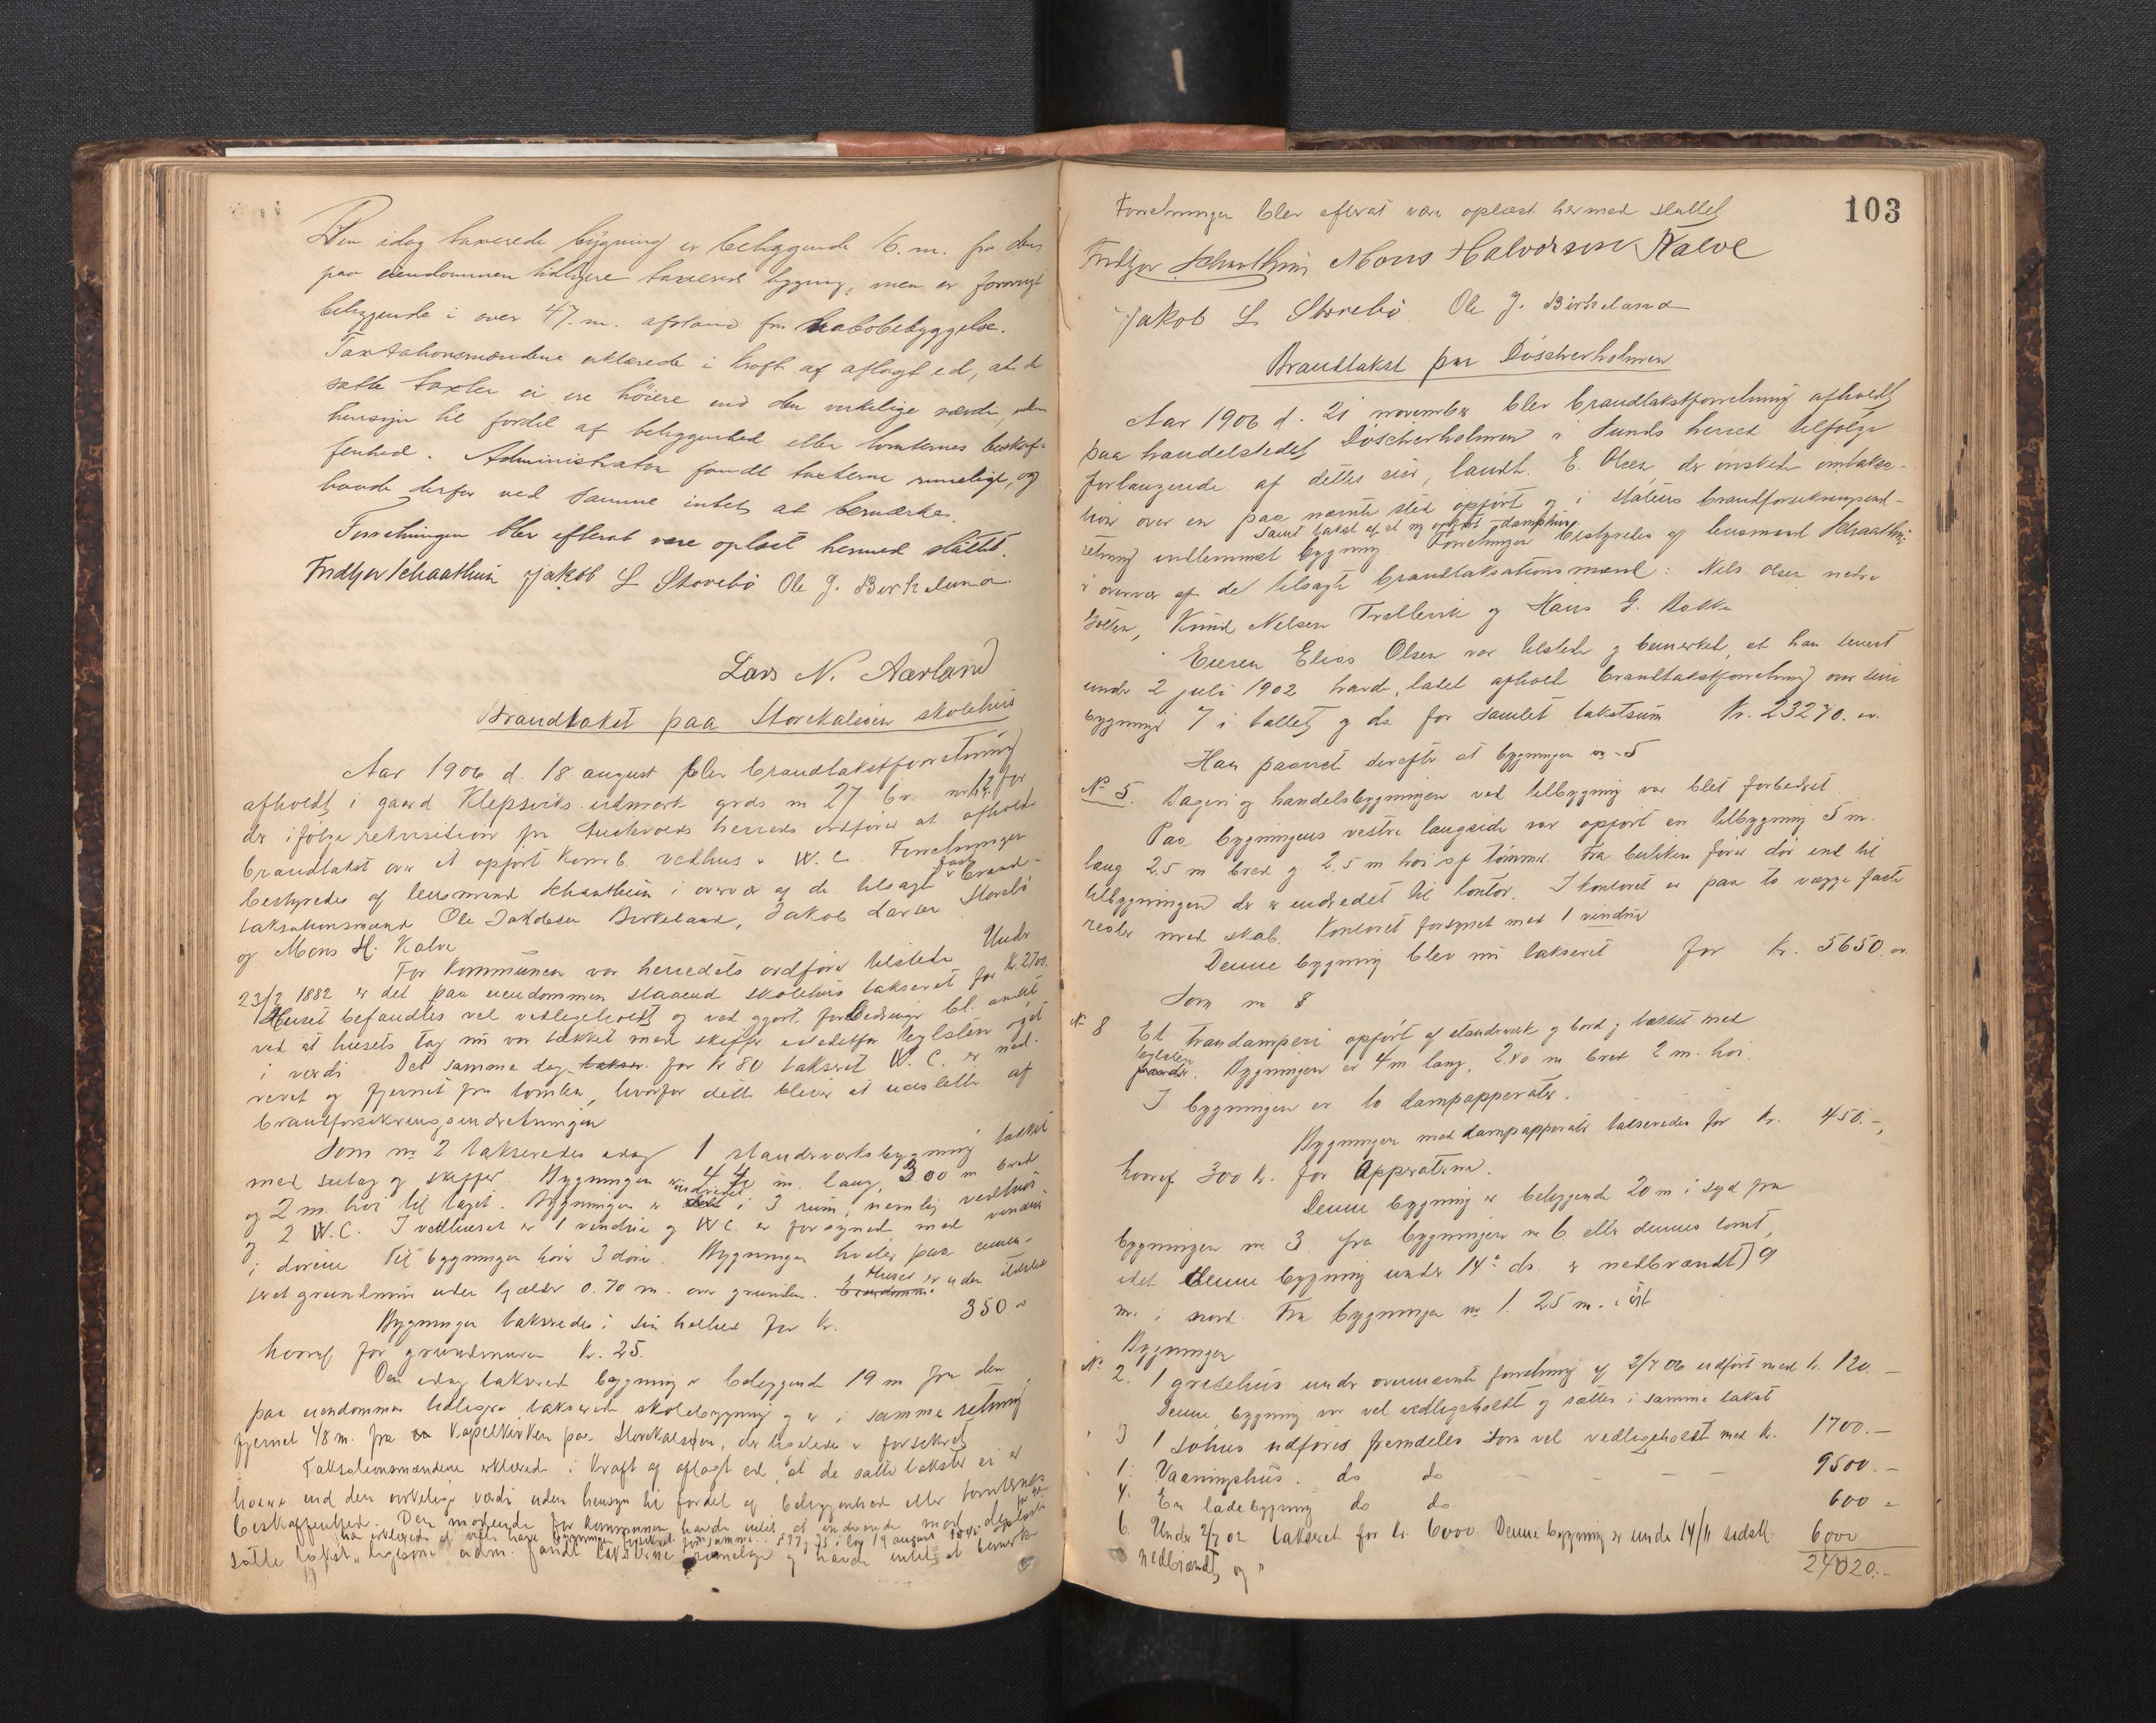 Den idag taxerede bygning er beliggende 16. m. fra den
paa eiendommen tidligere taxerede bygning, men er forøvrigt
beliggende i over 47. m. afstand fra nabobebyggelse.
Taxtationsmændene erklærede i kraft af aflagt ed, at de
satte taxter ei ere höiere end den verkelige værdi, uden
hensyn til fordel af beliggenhed eller tomternes beskaf-
fenhed. Administrator fandt taxterne rimelige, og
havde derfor ved samme intet at bemærke.
Forretningen blev efterat være oplæst hermed sluttet.
Fridtjov Schaathun Jakob L Storebö Ole J. Birkeland
Lars N. Aarland
Brandtakst paa Storekalsöen skolehus
Aar 1906 d. 18 august blev brandtakstforretning
afholdt i gaard Klepsviks udmark grds nr 27 br. nr 12 for
der ifölge rekvisition fra Austevolds herreds ordförer at afholde
brandtakst over et opfört komb. vedhus & W. C. Forretningen
bestyredes af lensmand Schaathun i overvær af de tilsagte faste brand-
taksationsmænd Ole Jakobsen Birkeland, Jakob Larsen Storebö
og Mons H. Kalve
For kommunen var herredets ordförer tilstede Under
23/2 1882 er det paa eiendommen staaende skolehus takseret for Kr. 2700.
Huset befandtes vel vedligeholdt og ved gjort forbedringer bl. andet
ved at husets tag nu var tækket med skiffer istedetfor teglsten øget
i værdi. Det samme dag takser. for Kr 80 takseret W. C. er ned-
revet og fjernet fra tomten, hvorfor dette bliver at udslette af
brandforsikringsindretningen
Som nr 2 takseredes idag 1 standværksbygning tækket
med sutag og skiffer. Bygningen er 4.40 m. lang, 300 m bred
og 2 m. höi til taget. Bygningen er delt indredet i 3 rum, nemlig vedhus
og 2 W.C. I vedhuset er 1 vindu og WC. er forsynet med vinduer
i dörene Til bygningen hörer 3 döre. Bygningen hviler paa cemen-
teret grundmur uden kjælder 0.70 m. over grunden. & Huset er uden ildsted
Bygningen takseredes i sin helhed for Kr. 350.-
hvoraf for grundmuren Kr. 25.
Den idag takserede bygning er beliggende 19 m fra den
paa eiendommen tidligere takserede skolebygning og er i samme retning
fjernet 48 m. fra Kapelkirken paa Storekalsöen, der ligeledes er forsikret
Taksationsmændene erklærede i kraft af aflagt ed, at de satte takster ei er
höiere end den verkelige værdi uden hensyn til fordel af beliggenhed eller tomternes
beskaffenhed. Den mödende for kommunen havde intet at indvende mod de oplæste
han erklærede at ville have bygningen forsikret for samme. § 17 og 25 i lov 19 august 1845 oplæst
satte takst, ligesom adm. fandt taksterne rimelige og havde intet at bemærke
103
Forretningen blev efterat være oplæst hermed sluttet
Fridtjov Schaathun Mons Halvorsen Kalve
Jakob L Storebö Ole J. Birkeland
Brandtakst paa Döscherholmen
Aar 1906 d. 21 november blev brandtakstforretning afholdt
paa handelstedet Döscherholmen i Sunds herred tilfölge
forlangende af dettes eier, landh. E. Olsen, der önskede omtaksa-
tion over en paa nævnte sted opfört og i statens brandforsikringsind-
samt takst af et ny opfört damphus
retning indlemmet bygning. Forretningen bestyredes af lensmand Schaathun
i overvær af de tilsagte brandtaksationsmænd: Nils Olsen nedre
Golten, Knud Nelsen Trellevik og Hans G. Bakke
Eieren Elias Olsen var tilstede og bemerket, at han senest
under 2 juli 1902 havde ladet afholdt brandtakstforretning over sine
bygninger 7 i tallet og da for samlet takstsum Kr. 23270. -
Han paaviste derefter at bygningen nr 5
No 5. Bageri og handelsbygningen ved tilbygning var blet forbedret.
Paa bygningens vestre langside var opfört en tilbygning 5 m.
lang 2.5 m bred og 2,5 m höi af tömmer. Fra butiken förer dör ind til
tilbygningen der er indredet til kontor. I kontoret er paa to vægge faste
reoler med skab. Kontoret forsynet med 1 vindu
Denne bygning blev nu takseret for Kr. 5650.-
Som nr 8
No 8 Et trandamperi opfört af standværk og bord og tækket med
teglsten. Bygningen er 4 m lang, 2.40 m bred 2 m. höi.
I bygningen er to dampapperater.
Bygningen med dampapperater takseredes for Kr. 450.-,
hvoraf 300 Kr. for Apperatene.
Denne bygning er beliggende 20 m i syd fra
bygningen nr 3 fra bygningen nr 6. eller dennes tomt,
idet denne bygning under 14de ds. er nedbrændt) 9
m. i nord. Fra bygningen nr 1. 25 m. i öst
Bygningen
No 2. 1 grisehus under ovennævnte forretning af 2/7 02 udfört med Kr. 120.-
Denne bygning var vel vedligeholdt og sættes i samme takst
" 3 1 söhus udföres fremdeles som vel vedligeholdt med Kr. 1700.-
" 1: Vaaningshus. do do - - - - 9500.-
4. En ladebygning do do 600 -
6. Under 2/7 02 takseret for Kr 6000. Denne bygning er under 14/11 sidstl. 6000
nedbrændt, og " 24020.-